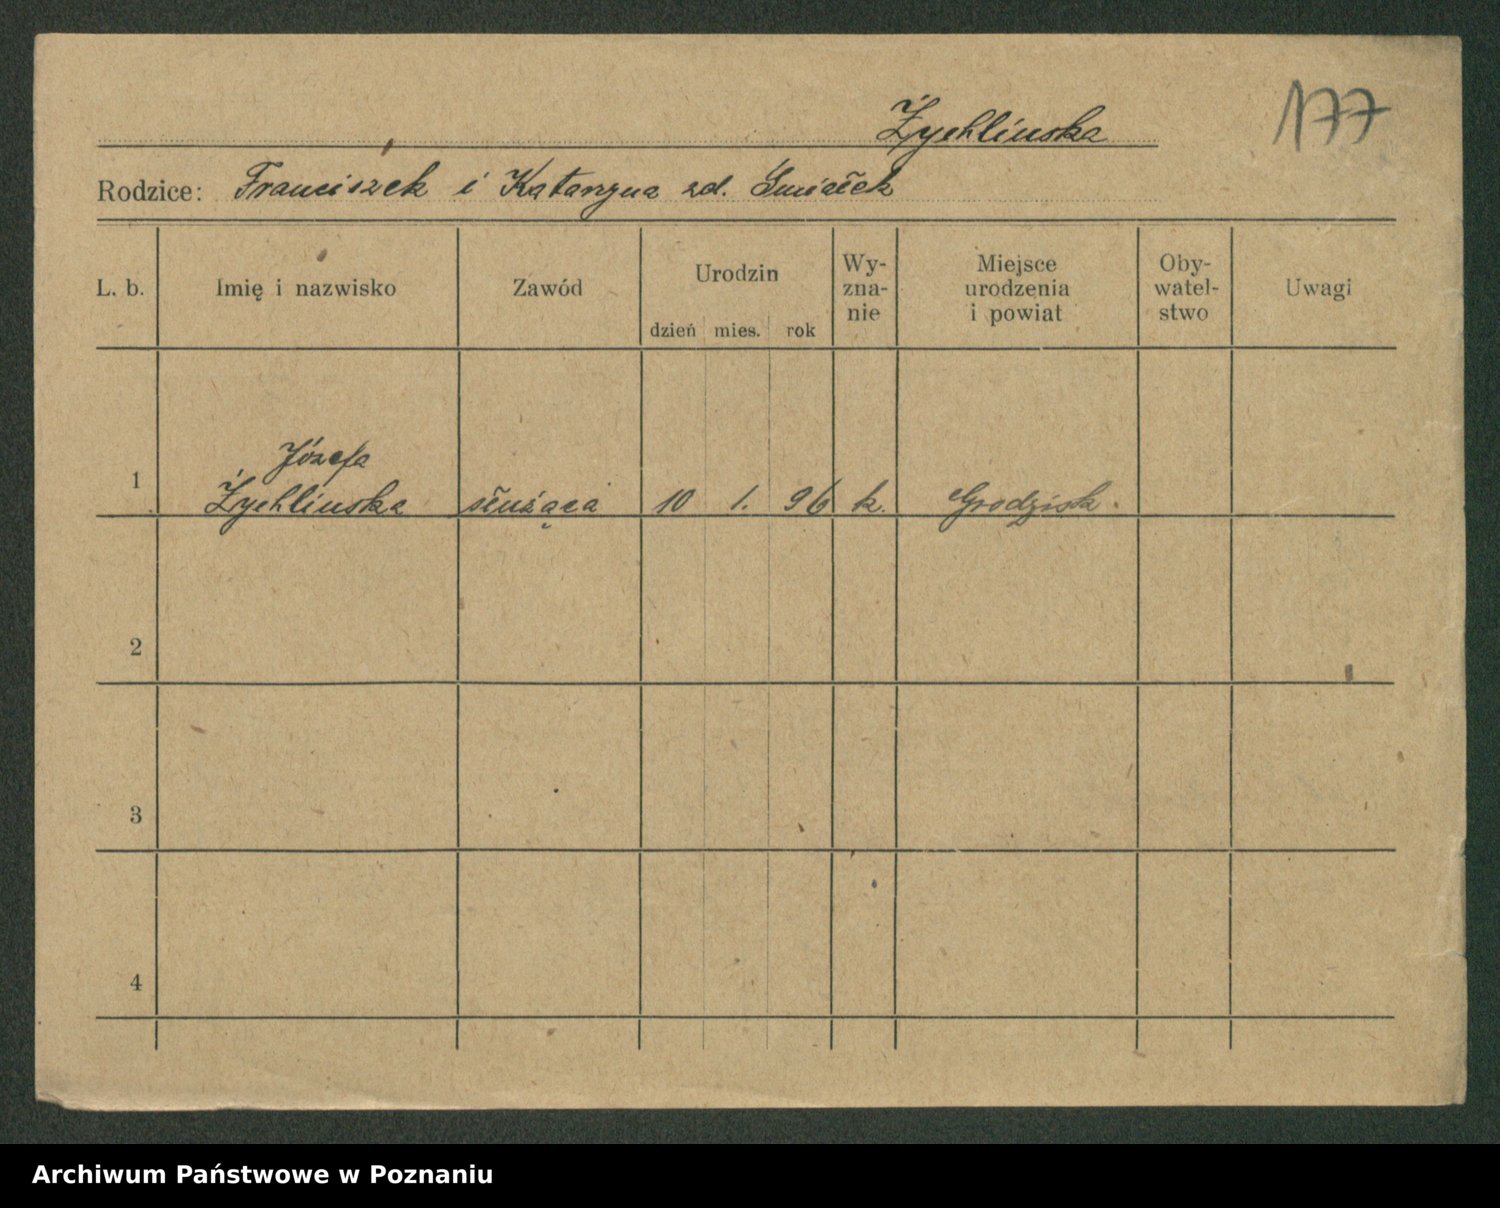 177
Żychlinska
Rodzice: Franciszek i Katarzyna zd.
L. b. Imię i nazwisko Zawód Urodzin Wy-zna-nie Miejsce urodzenia i powiat Oby-watel-stwo Uwagi
dzień mies. rok
Józefa
1 Żychlinska służąca 10 1. 96 k. Grodzisk.
2
3
4
Archiwum Państwowe w Poznaniu